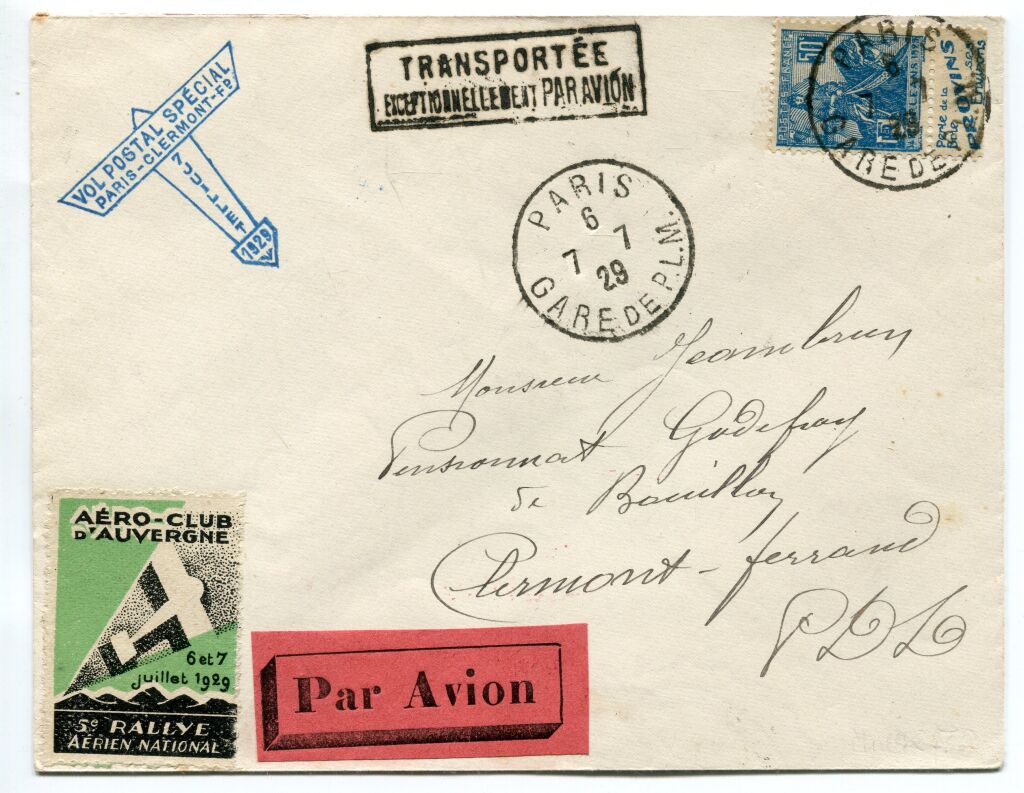 VOL POSTAL SPÉCIAL
PARIS-CLERMONT-Fᴰ
7 JUILLET
1929
TRANSPORTÉE
EXCEPTIONNELLEMENT PAR AVION
POSTES FRANÇAISES
50ᶜ
PARIS
6
7 7
29
GARE DE
Perle de la
Brie
PROVINS
PARIS
6
7 7
29
GARE DE P.L.M.
Monsieur Jeambrun
Pensionnat Godefroy
de Bouillon
Clermont-ferrand
P D D
AÉRO-CLUB
D'AUVERGNE
6 et 7
juillet 1929
5ᵉ RALLYE
AÉRIEN NATIONAL
Par Avion